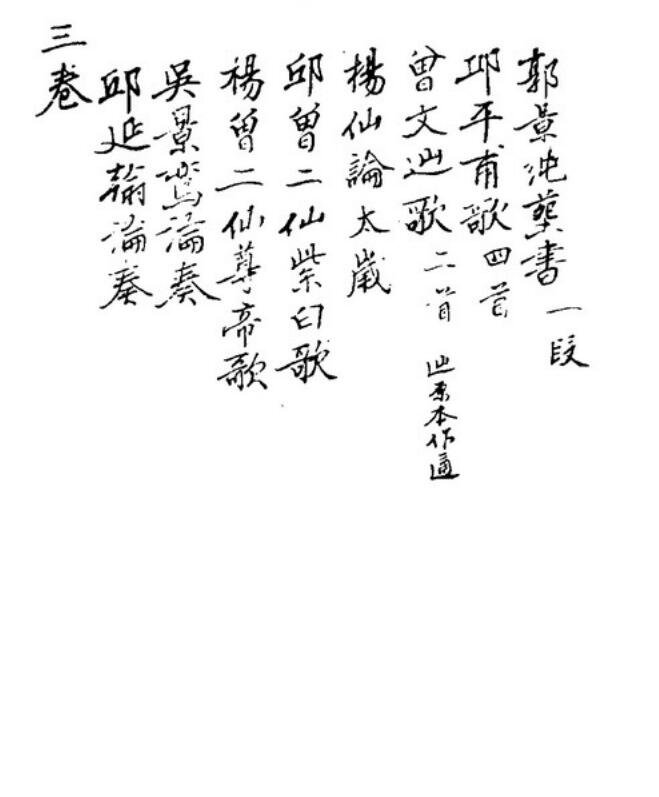 郭景純葬書 一段
邱平甫歌 四首
曾文辿歌 二首 辿原本作遄
楊仙論太歲
邱曾二仙紫白歌
楊曾二仙尊帝歌
吳景鸞論奏
邱延翰論奏
三卷